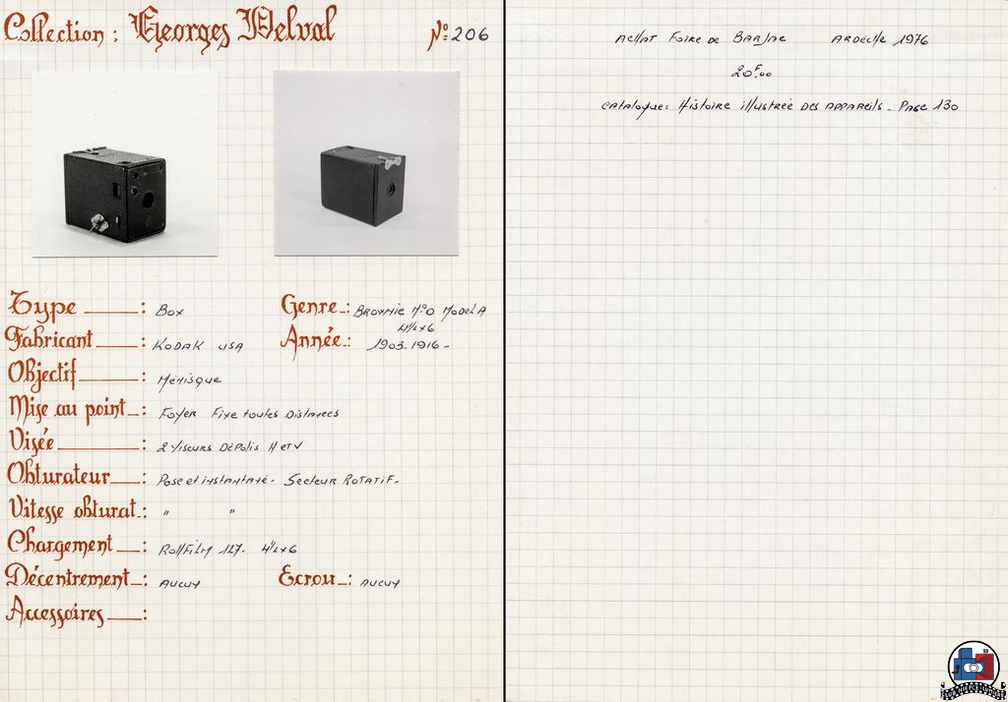 Collection : Georges Delval
Nº 206
Type : Box
Genre : Brownie Nº0 Model A
4½x6
Fabricant : KODAK USA
Année : 1903-1916-
Objectif : Ménisque
Mise au point : Foyer Fixe toutes Distances
Visée : 2 Viseurs Dépolis H et V
Obturateur : Pose et instantané - Secteur Rotatif-
Vitesse obturat. : " "
Chargement : RollFilm 127. 4½x6
Décentrement : Aucun
Ecrou : Aucun
Accessoires :
Achat Foire de Barjac Ardèche 1976
20F.00
Catalogue: Histoire illustrée des appareils - Page 130